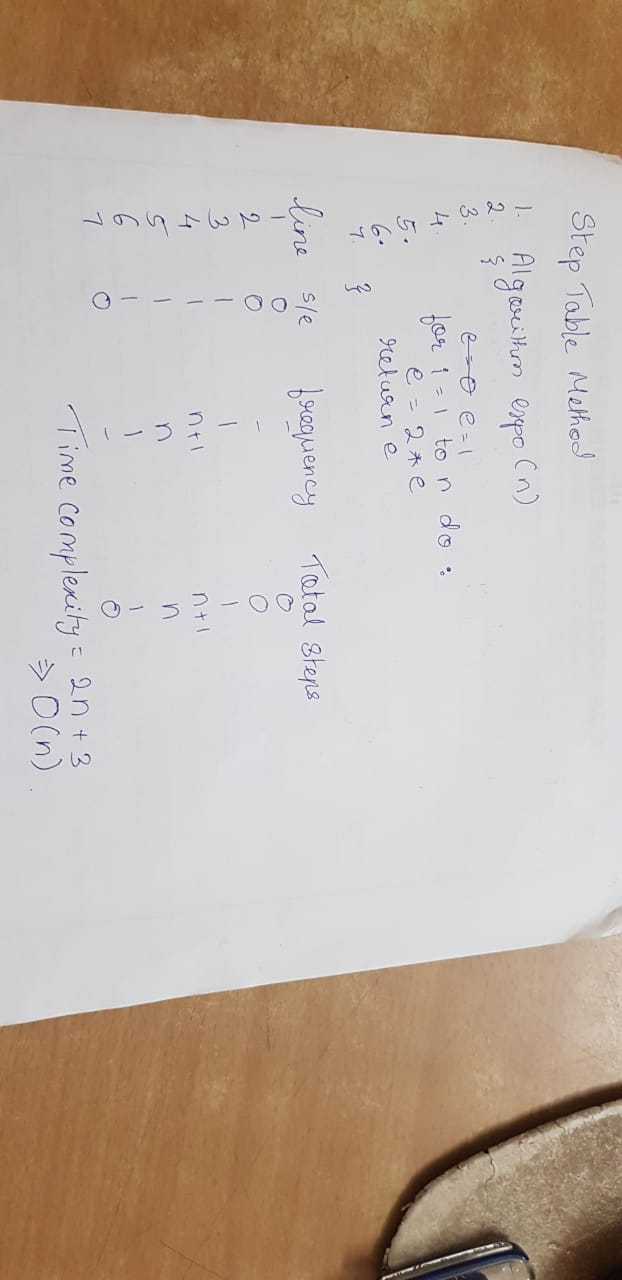 Step Table Method
1. Algorithm expo(n)
2. {
3. e=0 e=1
4. for i = 1 to n do :
5. e = 2*e
6. return e
7. }
line s/e frequency Total Steps
1 0 - 0
2 0 - 0
3 1 1 1
4 1 n+1 n+1
5 1 n n
6 1 1 1
7 0 - 0
Time complexity = 2n+3
⇒ O(n).